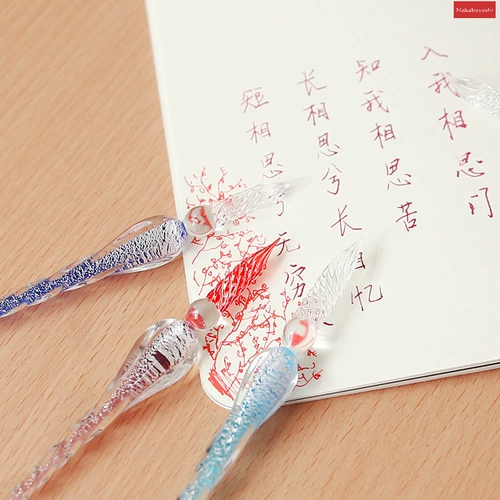 Nakabayashi
入我相思门
知我相思苦
长相思兮长相忆
短相思兮无穷